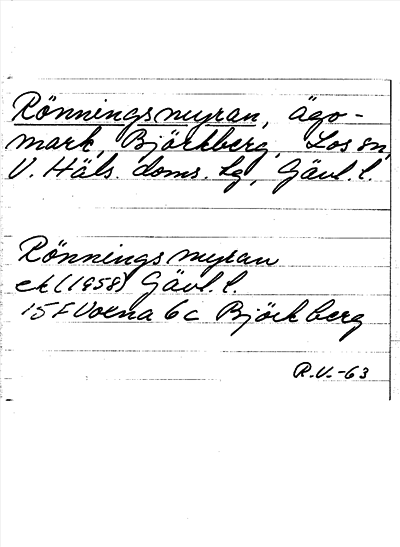 Rönningsmyran, ägo-
mark, Björkberg, Los sn,
V. Häls. doms. lg, Gävl. l.
Rönningsmyran
ek (1958) Gävl. l.
15F Voxna 6c Björkberg
R.V.-63